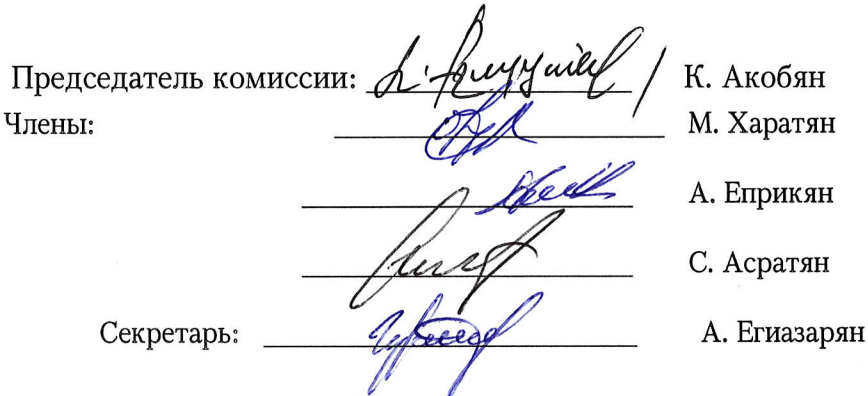 Председатель комиссии: К. Акобян
Члены: М. Харатян
А. Еприкян
С. Асратян
Секретарь: А. Егиазарян